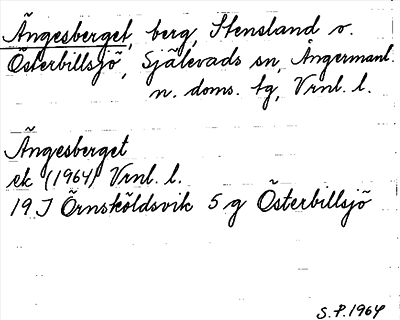 Ängesberget, berg, Stensland o.
Österbillsjö, Själevads sn, Ångermanl.
n. doms. tg, Vrnl. l.
Ängesberget
ek (1964) Vrnl. l.
19 J Örnsköldsvik 5 g Österbillsjö
S.P. 1964